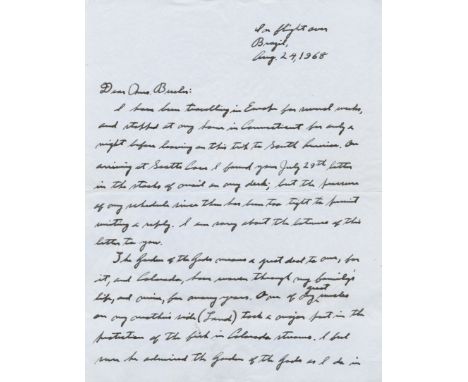 In flight over
Brazil,
Aug. 24, 1968
Dear
I have been travelling in Europe for several weeks,
and stopped at my home in Connecticut for only a
night before leaving on this trip to South America. On
arriving at I found your July 29th letter
in the stacks of mail on my desk; but the pressure
of my schedule since then has been too tight to permit
writing a reply. I am sorry about the lateness of this
letter to you.
The Garden of the Gods means a great deal to me, for
it, and Colorado, have woven through my family's
life, and mine, for many years. One of my great uncles
on my mother's side (Land) took a major part in the
protection of the fish in Colorado streams. I feel
sure he admired the Garden of the Gods as I do in